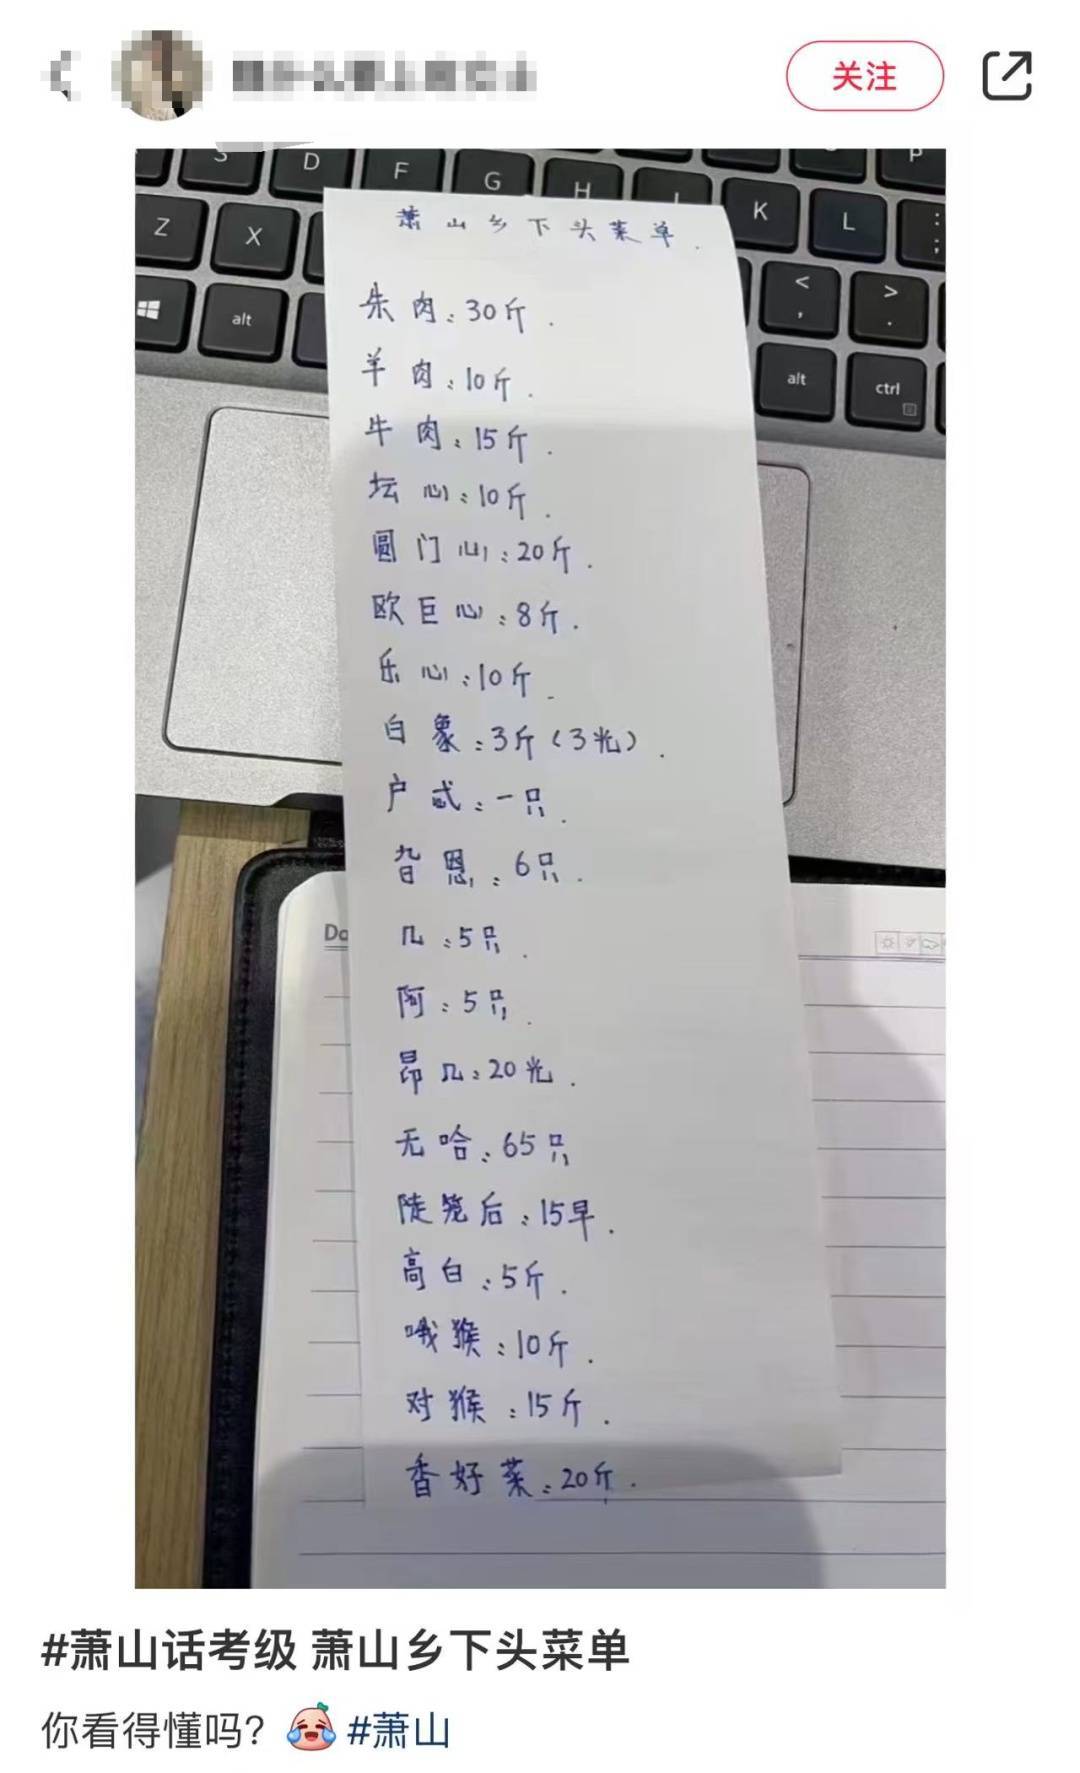 关注
S D F G H J K L P
Z X : ;
< , > .
alt alt ctrl
萧山乡下头菜单.
朱肉:30斤.
羊肉:10斤.
牛肉:15斤.
坛心:10斤.
圆门心:20斤.
欧巨心:8斤.
乐心:10斤.
白象:3斤(3光).
户忒:一只.
旮恩:6只.
几:5只.
阿:5只.
昂几:20光.
无哈:65只
陡笼后:15早.
高白:5斤.
哦猴:10斤.
对猴:15斤.
香好菜:20斤.
#萧山话考级 萧山乡下头菜单
你看得懂吗? #萧山